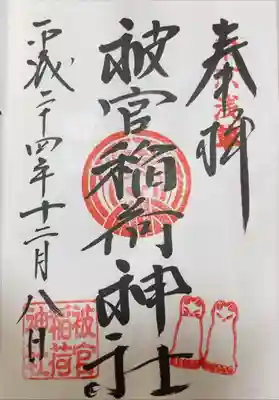 奉拝
被官稲荷神社
平成二十四年十二月八日
被官
稲荷
神社